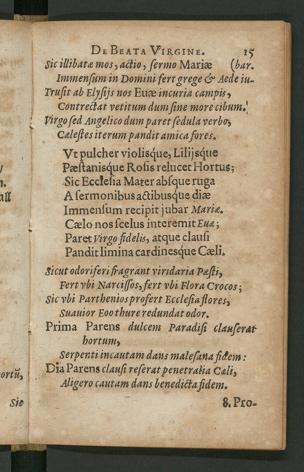 DE BEATA VIRGINE. 15
Sic illibatæ mos, actio, sermo Mariæ (bar.
Immensum in Domini fert grege & Aede iu-
Trusit ab Elysijs nos Euæ incuria campis,
Contrectat vetitum dum sine more cibum.
Virgo sed Angelico dum paret sedula verbo,
Cælestes iterum pandit amica fores.
Vt pulcher violisque, Lilijsque
Pæstanisque Rosis relucet Hortus;
Sic Ecclesia Mater absque ruga
A sermonibus actibusque diæ
Immensum recipit jubar Mariæ.
Cælo nos scelus interemit Euæ;
Paret Virgo fidelis, atque clausi
Pandit limina cardinesque Cæli.
Sicut odoriferi fragrant viridaria Pæsti,
Fert vbi Narcissos, fert vbi Flora Crocos;
Sic vbi Parthenios profert Ecclesia flores,
Suauior Eoo thure redundat odor.
Prima Parens dulcem Paradisi clauserat
hortum,
Serpenti incautam dans malesana fidem:
Dia Parens clausi reserat penetralia Cæli,
Aligero cautam dans benedicta fidem.
8. Pro-